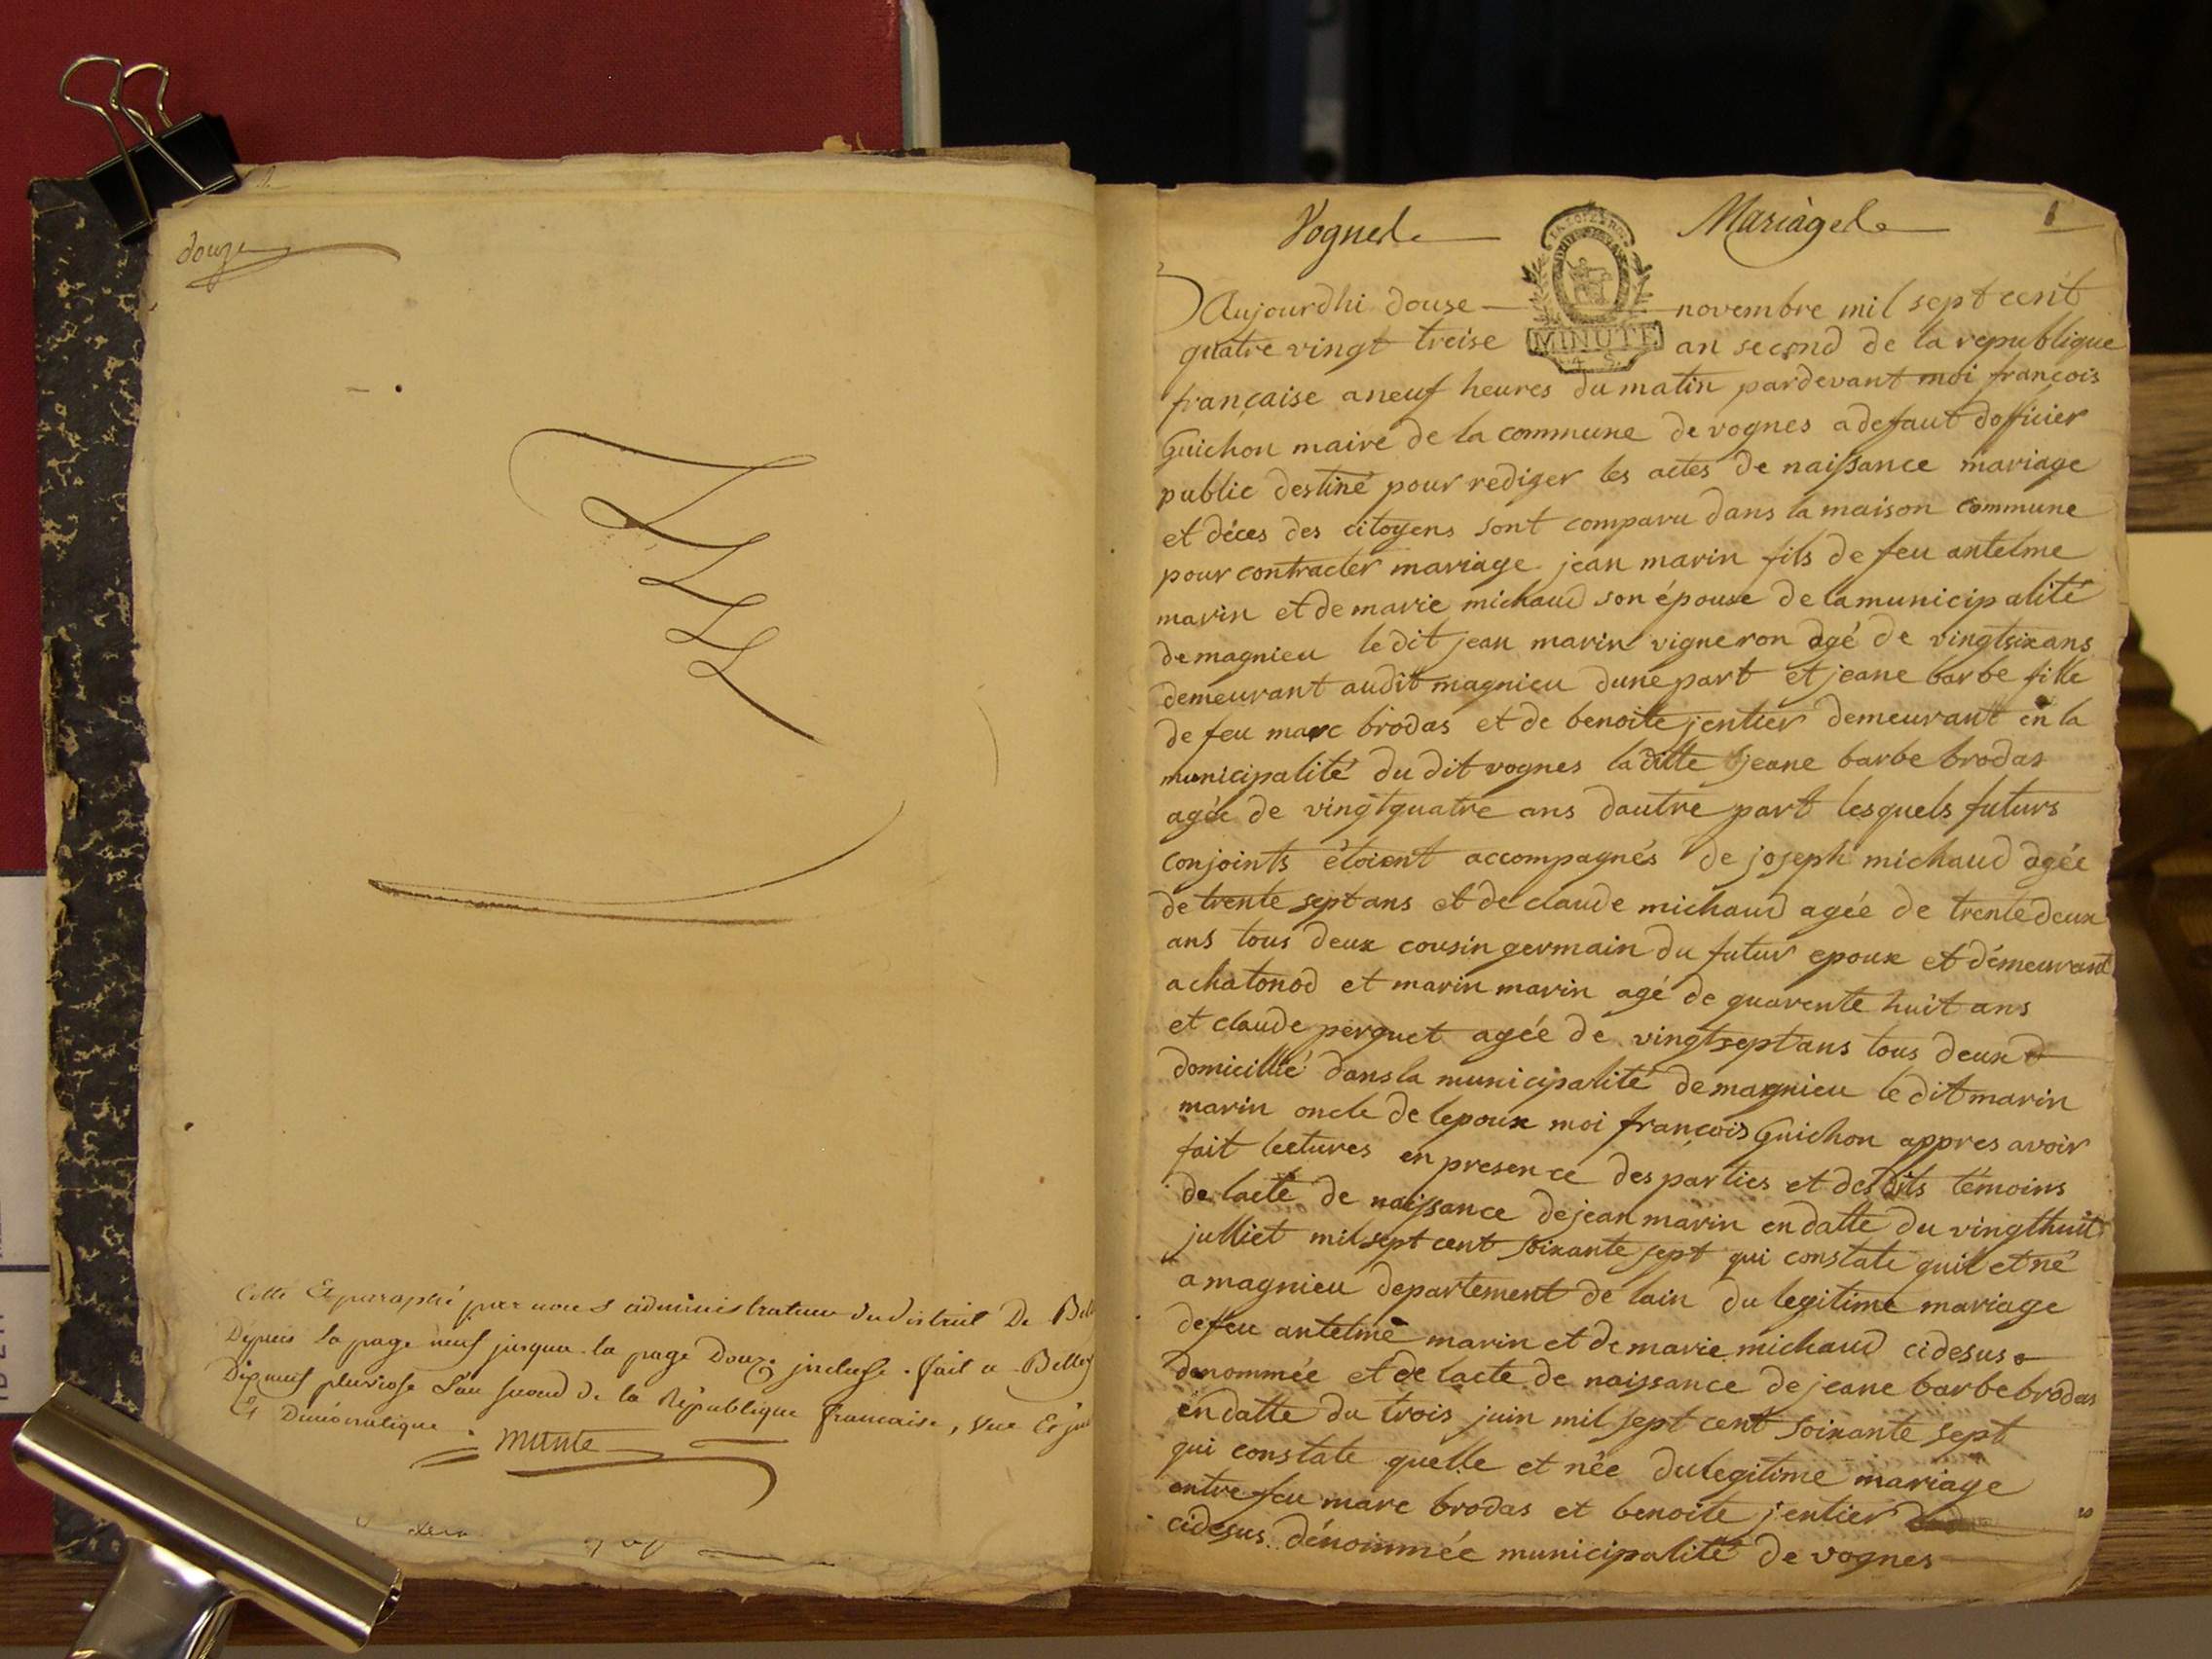 douze
Cotté Et paraphé par nous administrateur du district De Bell
Depuis la page neuf jusqua la page Douze incluse. fait a Belley
Dixneuf pluviose L'an second de la République francaise, une Et
Et Democratique.
Vognes Mariages 1
MINUTE
4 S.
Aujourdhi douse novembre mil sept cent
quatre vingt treise an second de la republique
française a neuf heures du matin pardevant moi françois
Guichon maire de la commune de vognes a defaut dofficier
public destiné pour rediger les actes de naissance mariage
et déces des citoyens sont comparu dans la maison commune
pour contracter mariage jean marin fils de feu antelme
marin et de marie michaud son épouse de la municipalité
de magnieu le dit jean marin vigneron agé de vingtsix ans
demeurant audit magnieu dune part et jeane barbe fille
de feu marc brodas et de benoite jentier demeurant en la
municipalité du dit vognes laditte jeane barbe brodas
agée de vingtquatre ans dautre part lesquels futurs
conjoints étoient accompagnés de joseph michaud agée
de trente sept ans et de claude michaud agée de trente deux
ans tous deux cousin germain du futur epoux et démeurant
a chatonod et marin marin agé de quarente huit ans
et claude perquet agée de vingtsept ans tous deux
domicillié dans la municipalité de magnieu le dit marin
marin oncle de lepoux moi françois Guichon appres avoir
fait lectures en presence des parties et desdits témoins
de lacte de naissance de jean marin en datte du vingthuit
julliet mil sept cent soixante sept qui constate quil et né
a magnieu departement de lain du legitime mariage
de feu antelme marin et de marie michaud cidesus
denommée et de lacte de naissance de jeane barbe brodas
en datte du trois juin mil sept cent soixante sept
qui constate quelle et née du legitime mariage
entre feu marc brodas et benoite jentier
cidesus dénommée municipalité de vognes